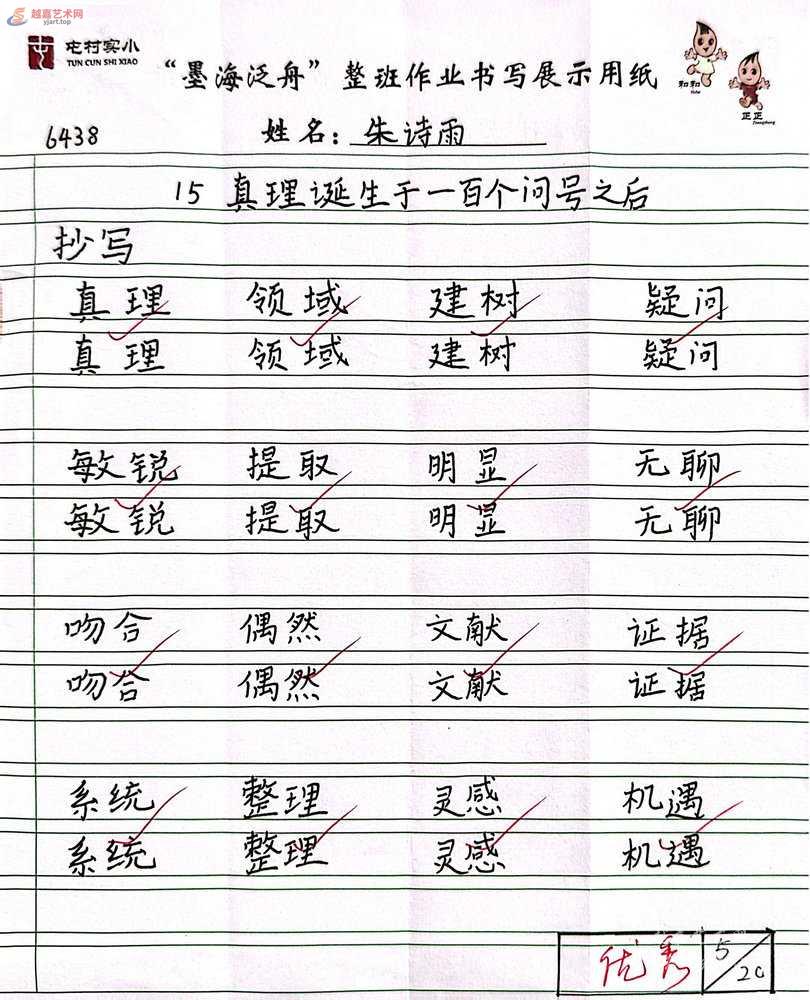 越嘉艺术网
yjart.top
屯村实小
TUN CUN SHI XIAO
“墨海泛舟”整班作业书写展示用纸
和和
正正
6438
姓名：朱诗雨
15 真理诞生于一百个问号之后
抄写
真理 领域 建树 疑问
真理 领域 建树 疑问
敏锐 提取 明显 无聊
敏锐 提取 明显 无聊
吻合 偶然 文献 证据
吻合 偶然 文献 证据
系统 整理 灵感 机遇
系统 整理 灵感 机遇
优秀 5/20